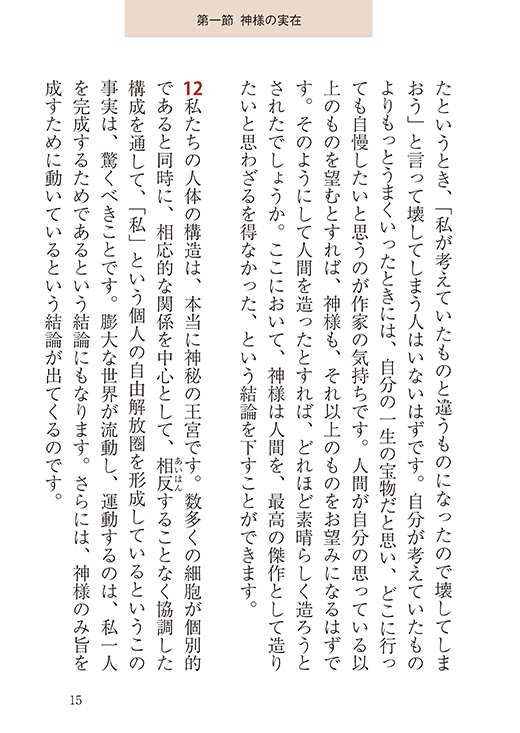 第一節 神様の実在
たというとき、「私が考えていたものと違うものになったので壊してしま
おう」と言って壊してしまう人はいないはずです。自分が考えていたもの
よりもっとうまくいったときには、自分の一生の宝物だと思い、どこに行っ
ても自慢したいと思うのが作家の気持ちです。人間が自分の思っている以
上のものを望むとすれば、神様も、それ以上のものをお望みになるはずで
す。そのようにして人間を造ったとすれば、どれほど素晴らしく造ろうと
されたでしょうか。ここにおいて、神様は人間を、最高の傑作として造り
たいと思わざるを得なかった、という結論を下すことができます。
12私たちの人体の構造は、本当に神秘の王宮です。数多くの細胞が個別的
であると同時に、相応的な関係を中心として、相反することなく協調した
あいはん
構成を通して、「私」という個人の自由解放圏を形成しているというこの
事実は、驚くべきことです。膨大な世界が流動し、運動するのは、私一人
を完成するためであるという結論にもなります。さらには、神様のみ旨を
成すために動いているという結論が出てくるのです。
15